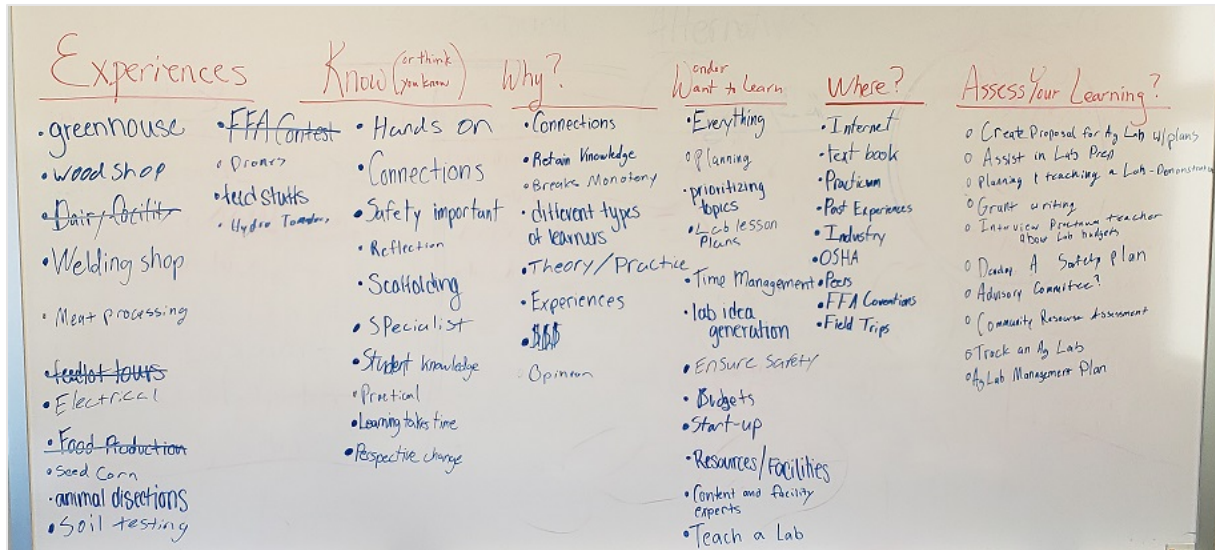 Experiences
• greenhouse
• Wood Shop
• Dairy facility
• Welding shop
• Meat processing
• feedlot tours
• Electrical
• Food Production
• Seed Corn
• animal disections
• Soil testing
• FFA Contest
• Drones
• feed stuffs
• Hydro
Know (or think
you know)
• Hands on
• Connections
• Safety important
• Reflection
• Scaffolding
• SPecialist
• Student knowledge
• Practical
• Learning takes time
• Perspective change
Why?
• Connections
• Retain Knowledge
• Breaks Monotony
• different types
of learners
• Theory/Practice
• Experiences
• $$$
• Opinion
Wonder
Want to Learn
• Everything
• Planning
• prioritizing
topics
• Lab lesson
Plans
• Time Management
• lab idea
generation
• Ensure Safety
• Budgets
• Start-up
• Resources/Facilities
• Content and facility
experts
• Teach a Lab
Where?
• Internet
• text book
• Practicum
• Past Experiences
• Industry
• OSHA
• Peers
• FFA Coventions
• Field Trips
Assess Your Learning?
○ Create Proposal for Ag Lab w/plans
○ Assist in Lab Prep
○ Planning & teaching a Lab - Demonstration
○ Grant writing
○ Interview Practicum teacher
about Lab budgets
○ A Safety plan
○ Advisory Committee?
○ Community Resource Assessment
○ Track an Ag Lab
○ Ag Lab Management Plan